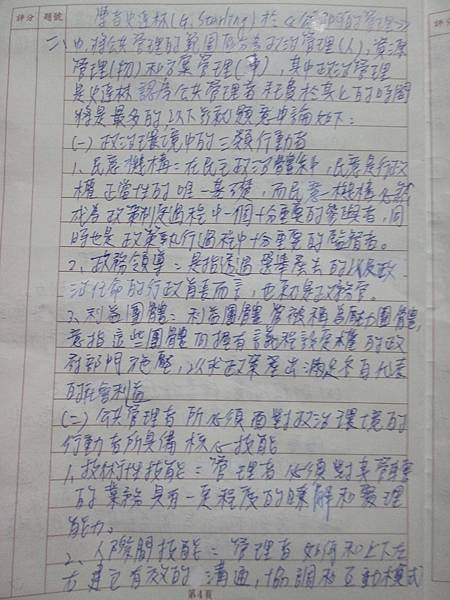 評分 題號 學者史達林(G. Starling)於《公部門的管理》
評分 題號
二、中,將公共管理的範圍區分為政治管理(人)、資源
管理(物)和方案管理(事),其中政治管理
是史達林認為公共管理者花費於其上的時間
將是最多的,以下茲就題意申論如下:
(一)政治環境中的三類行動者
1、民意機構:在民主政治體系中,民意是行政
權正當性的唯一基礎,而民意機構
成為政策制定過程中一個十分重要的 者,同
時也是政策執行過程中十分重要的監督者。
2、政務領導:是指透過選舉產生的以及政
治任命的行政首長而言,也就是政務官。
3、利益團體:利益團體 被稱為壓力團體,
意指這些團體向擁有議程設定權的政
府部門施壓,以求政策產出滿足各自代表
的社會利益
(二)公共管理者所必須面對政治環境的
行動者所具備核心技能
1、技術性技能:管理者必須對其管轄
的業務具有一定程度的瞭解和處理
能力。
2、人際關技能:管理者如何和上下左
右建立有效的溝通,協調和互動模式
第4頁